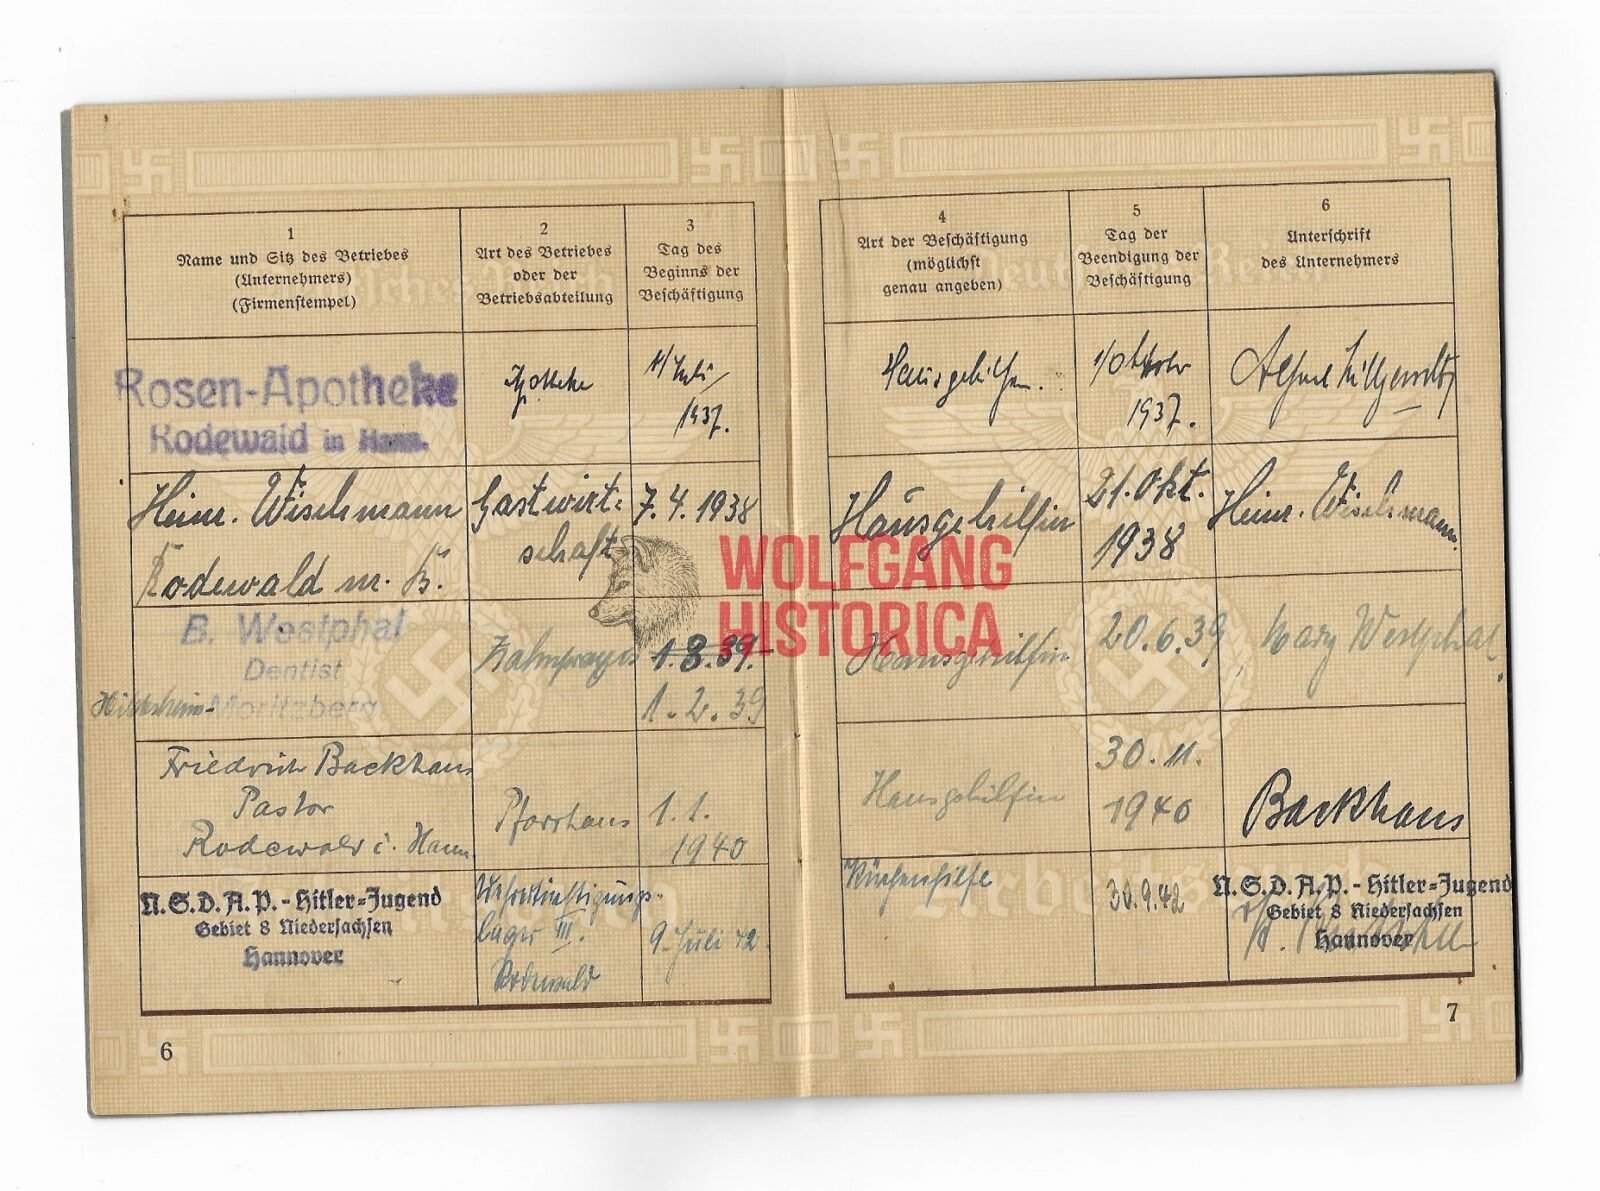 1
Name und Sitz des Betriebes
(Unternehmers)
(Firmenstempel)
2
Art des Betriebes
oder der
Betriebsabteilung
3
Tag des
Beginns der
Beschäftigung
Rosen-Apotheke
Rodewald in Hann.
Apotheke
1937.
Heinr. Wischmann
Rodewald m. B.
Gastwirt=
schaft
7. 4. 1938
B. Westphal
Dentist
Hildesheim-Moritzberg
1. 3. 39.
1. 2. 39
Friedrich Backhaus
Pastor
Rodewald i. Hann.
Pfarrhaus
1. 1.
1940
N.S.D.A.P.-Hitler=Jugend
Gebiet 8 Niedersachsen
Hannover
Wehrertüchtigungs-
lager III.
Rodewald
9. Juli 42.
6
4
Art der Beschäftigung
(möglichst
genau angeben)
5
Tag der
Beendigung der
Beschäftigung
6
Unterschrift
des Unternehmers
Hausgehilfin.
1/Oktober
1937.
Hausgehilfin
21. Okt.
1938
Heinr. Wischmann.
Hausgehilfin
20. 6. 39
Mary Westphal.
Hausgehilfin
30. 11.
1940
Backhaus
Küchenhilfe
30. 9. 42
N.S.D.A.P.-Hitler=Jugend
Gebiet 8 Niedersachsen
Hannover
7
Deutsches Reich
Arbeitsbuch
WOLFGANG
HISTORICA